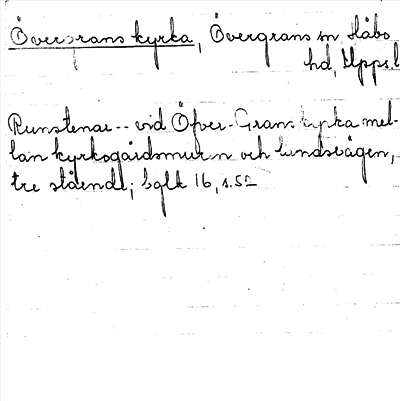 Övergrans kyrka, Övergrans sn, Håbo
hd, Upps.l
Runstenar -- vid Öfver-Grans kyrka mel-
lan kyrkogårdsmuren och landsvägen,
tre stående; 16, s.52